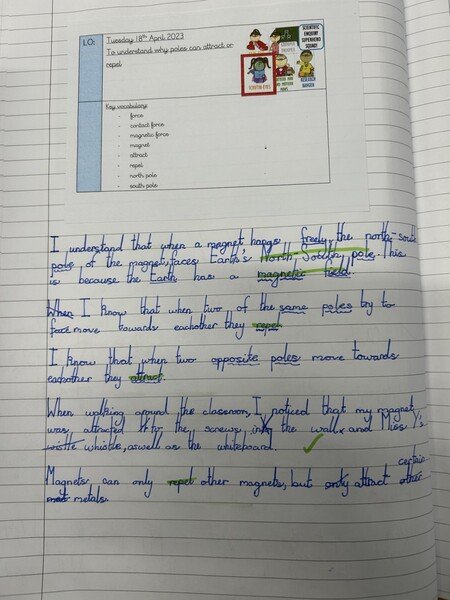 LO:
Tuesday 18th April 2023
To understand why poles can attract or
repel
SCIENTIFIC
ENQUIRY
SUPERHERO
SQUAD!
RESEARCH
RANGER
Key vocabulary:
- force
- contact force
- magnetic force
- magnet
- attract
- repel
- north pole
- south pole
I understand that when a magnet hangs freely, the north-south
pole of the magnet, faces Earth's North-South pole. This
is because the Earth has a magnetic field.
When I know that when two of the same poles try to
move towards eachother they repel.
I know that when two opposite poles move towards
eachother they attract.
When walking around the classroom, I noticed that my magnet
was attracted to the screws in the wall, and Miss Y's
whistle, aswell as the whiteboard.
certain
Magnets can only repel other magnets, but only attract other
metals.